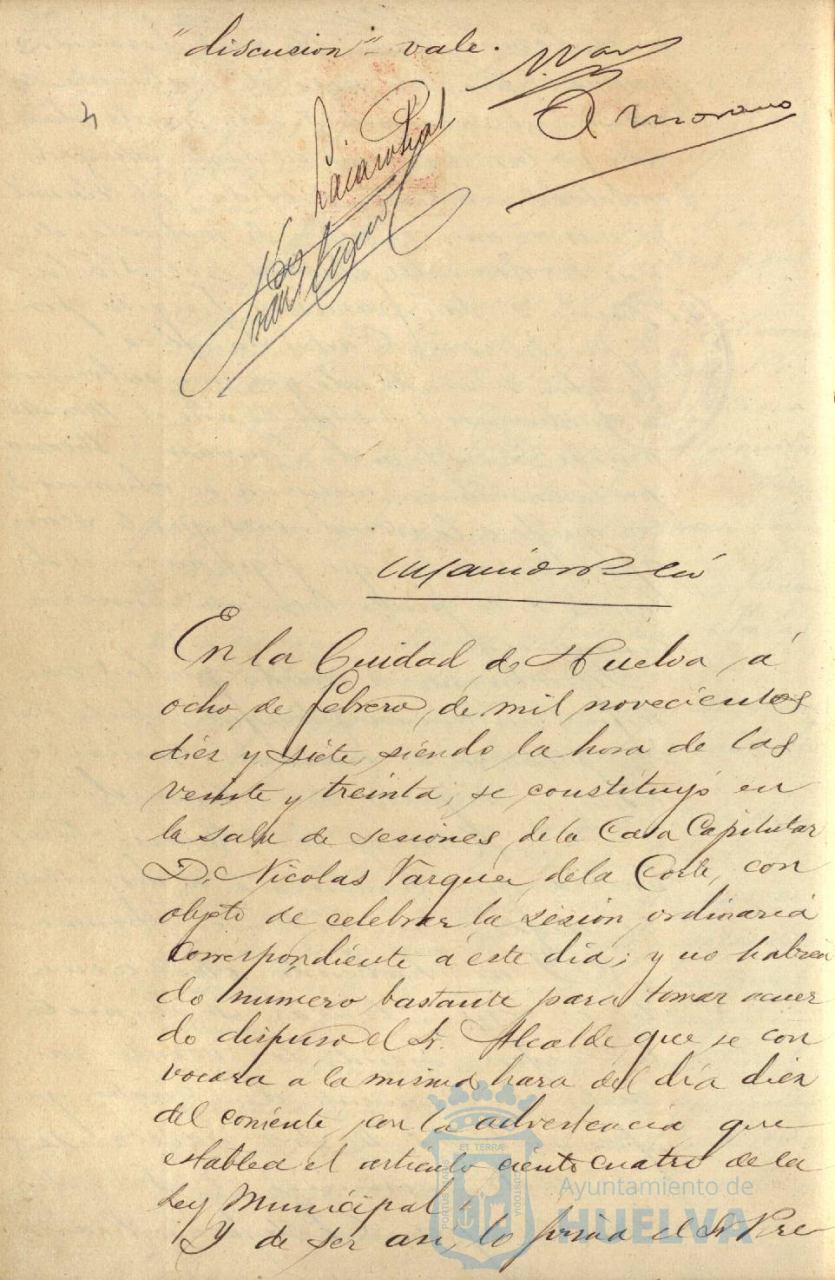 "discucion" vale.
A Moreno
En la Ciudad de Huelva á
ocho de febrero de mil novecientos
diez y siete, siendo la hora de las
veinte y treinta, se constituyó en
la sala de sesiones de la Casa Capitular
D. Nicolas Vazquez de la Corte, con
objeto de celebrar la sesión ordinaria
correspondiente á este dia; y no habien
do número bastante para tomar acuer
do dispuso el Sr. Alcalde que se con
vocara á la misma hora del día diez
del corriente, con la advertencia que
establece el artículo ciento cuatro de la
Ley Municipal.
Y de ser asi, lo firma el Sr Pre
ET TERRAE
Ayuntamiento de
HUELVA